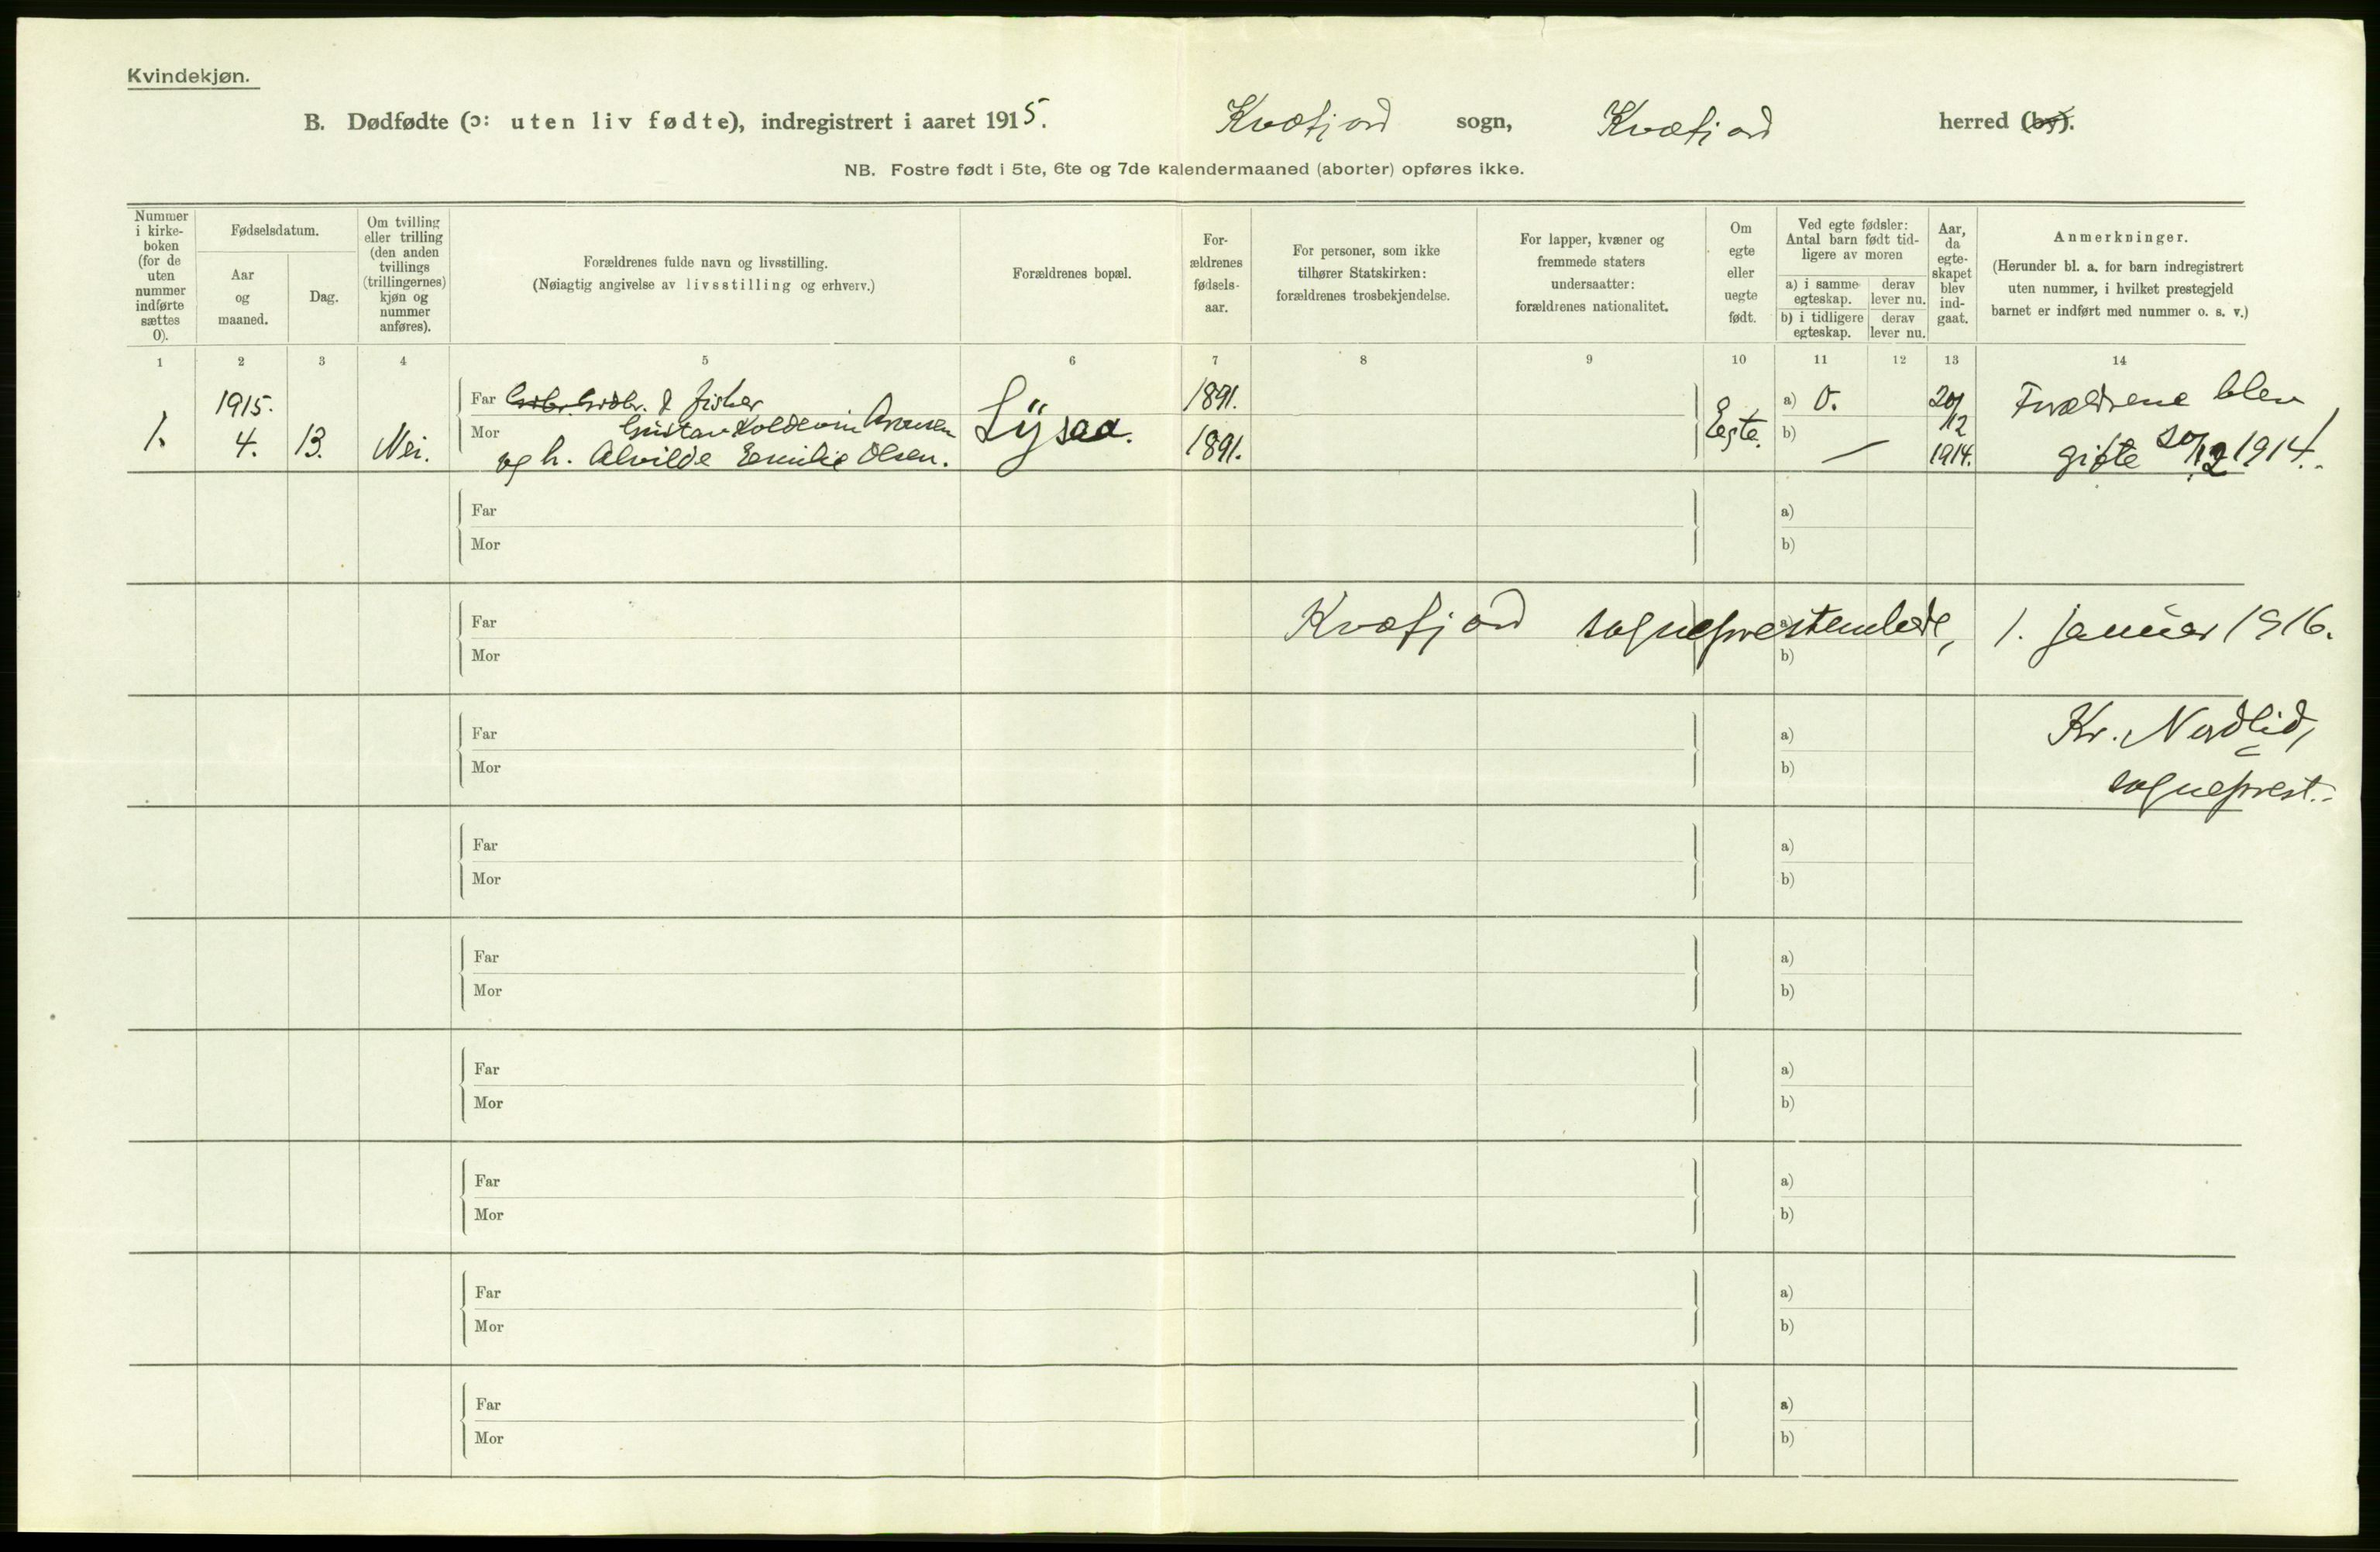 Kvindekjøn.
B. Dødfødte (ɔ: uten liv fødte), indregistrert i aaret 1915. Kvæfjord sogn, Kvæfjord herred (by).
NB. Fostre født i 5te, 6te og 7de kalendermaaned (aborter) opføres ikke.
Nummer i kirke-boken (for de uten nummer indførte sættes 0).
Fødselsdatum.
Aar og maaned.
Dag.
Om tvilling eller trilling (den anden tvillings (trillingernes) kjøn og nummer anføres).
Forældrenes fulde navn og livsstilling.
(Nøiagtig angivelse av livsstilling og erhverv.)
Forældrenes bopæl.
For-ældrenes fødsels-aar.
For personer, som ikke tilhører Statskirken: forældrenes trosbekjendelse.
For lapper, kvæner og fremmede staters undersaatter: forældrenes nationalitet.
Om egte eller uegte født.
Ved egte fødsler: Antal barn født tid-ligere av moren
a) i samme egteskap.
derav lever nu.
b) i tidligere egteskap.
derav lever nu.
Aar, da egte-skapet blev ind-gaat.
Anmerkninger.
(Herunder bl. a. for barn indregistrert uten nummer, i hvilket prestegjeld barnet er indført med nummer o. s. v.)
1 2 3 4 5 6 7 8 9 10 11 12 13 14
1. 1915. 4. 13. Nei.
Far Gdbr. & fisker
Mor Gustav Koldevin Aronsen
og h. Alvilde Emilie Olsen.
Lysaa.
1891.
1891.
Egte.
a) 0.
b) —
20/12 1914.
Forældrene blev
gifte 20/12 1914.
Far
Mor
a)
b)
Far
Mor
b)
Kvæfjord sogneprestembede, 1. januar 1916.
Far
Mor
a)
b)
Kr. Nordlid,
sogneprest.
Far
Mor
a)
b)
Far
Mor
a)
b)
Far
Mor
a)
b)
Far
Mor
a)
b)
Far
Mor
a)
b)
Far
Mor
a)
b)